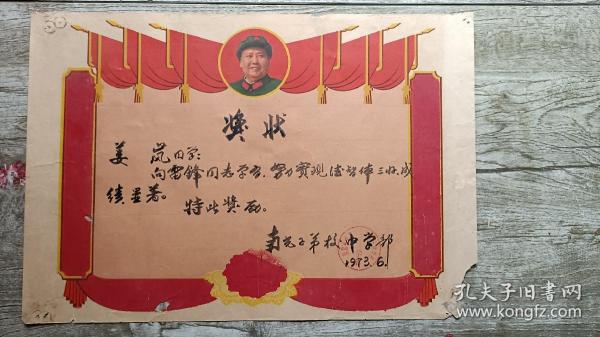 50
奖状
姜岚同学:
向雷锋同志学习,努力实现德智体三好,成
绩显著。
特此奖励。
子弟校中学部
1973.6.
孔夫子旧书网
www.kongfz.com